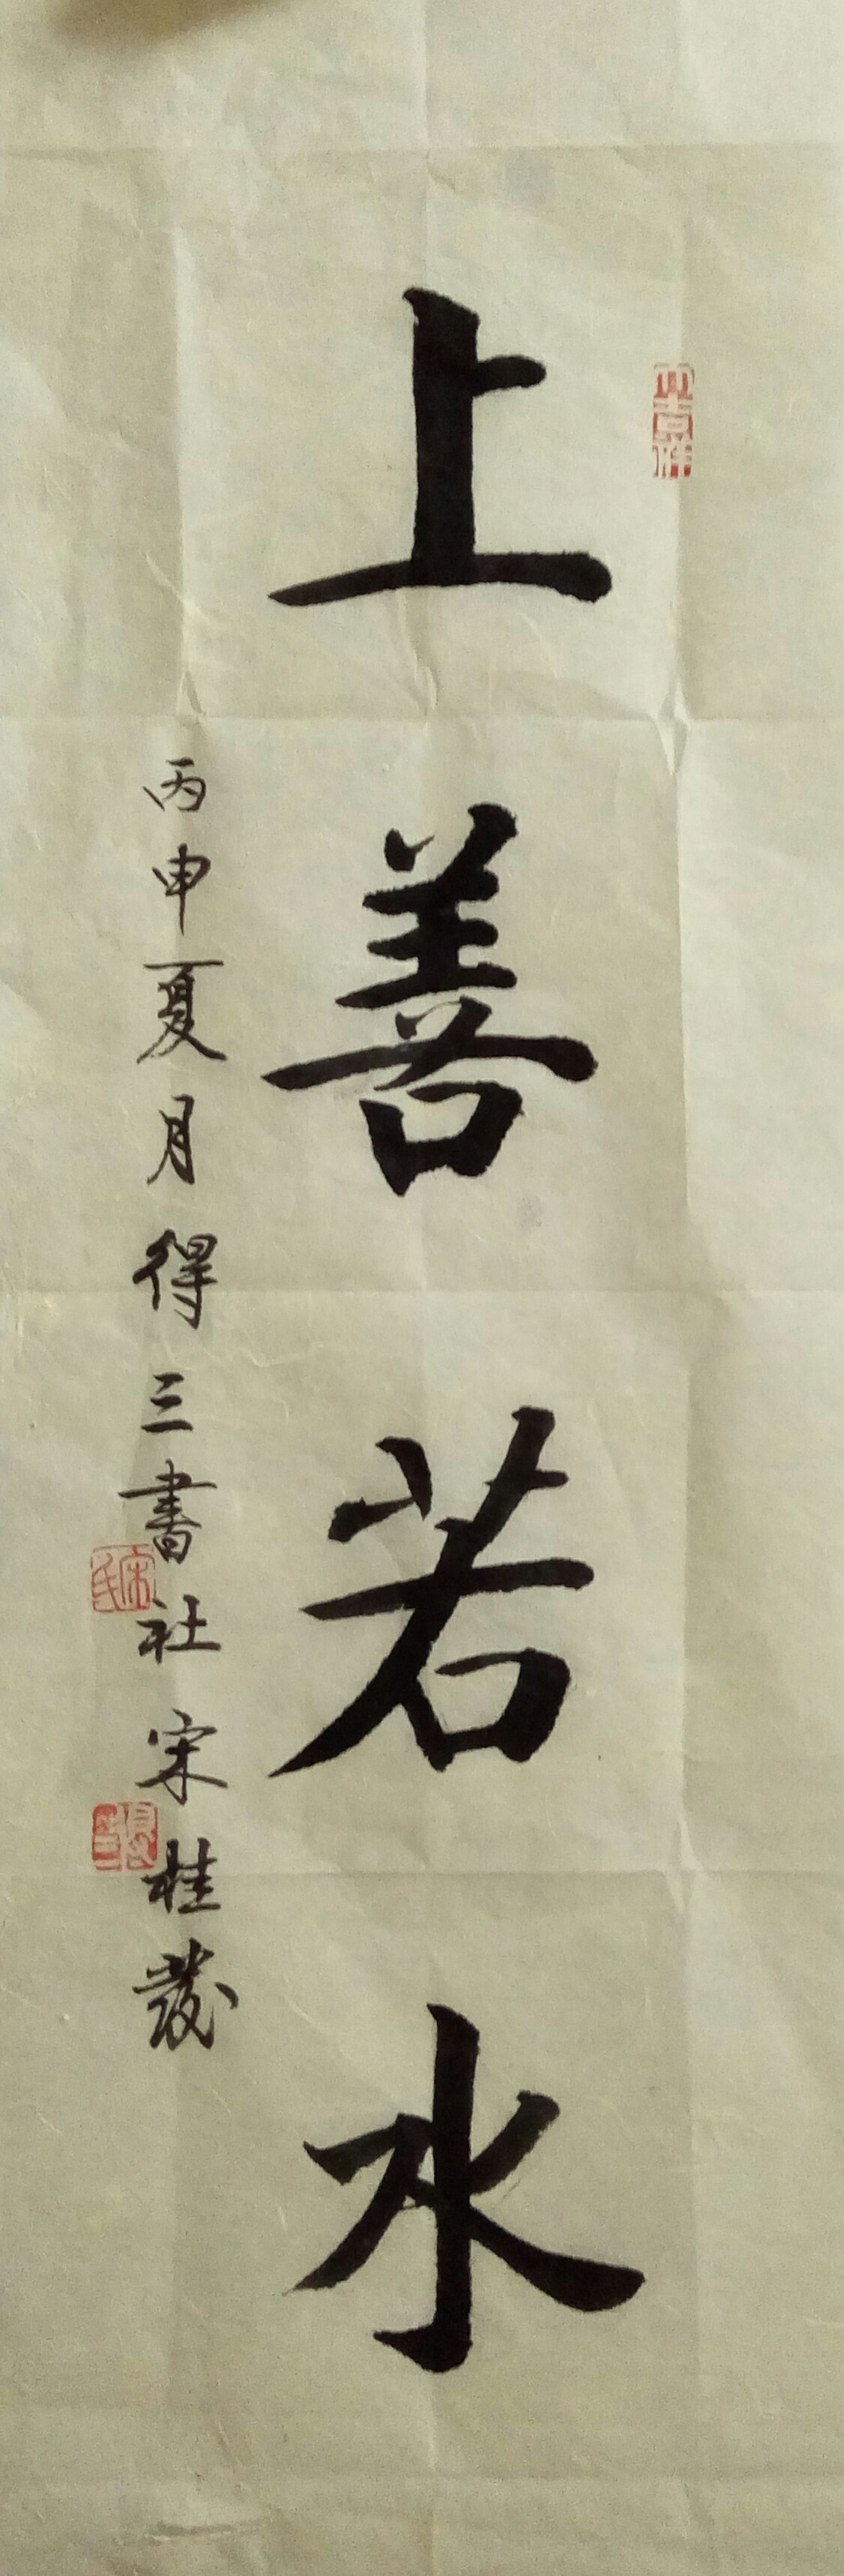 上善若水
丙申夏月得三書社宋桂發